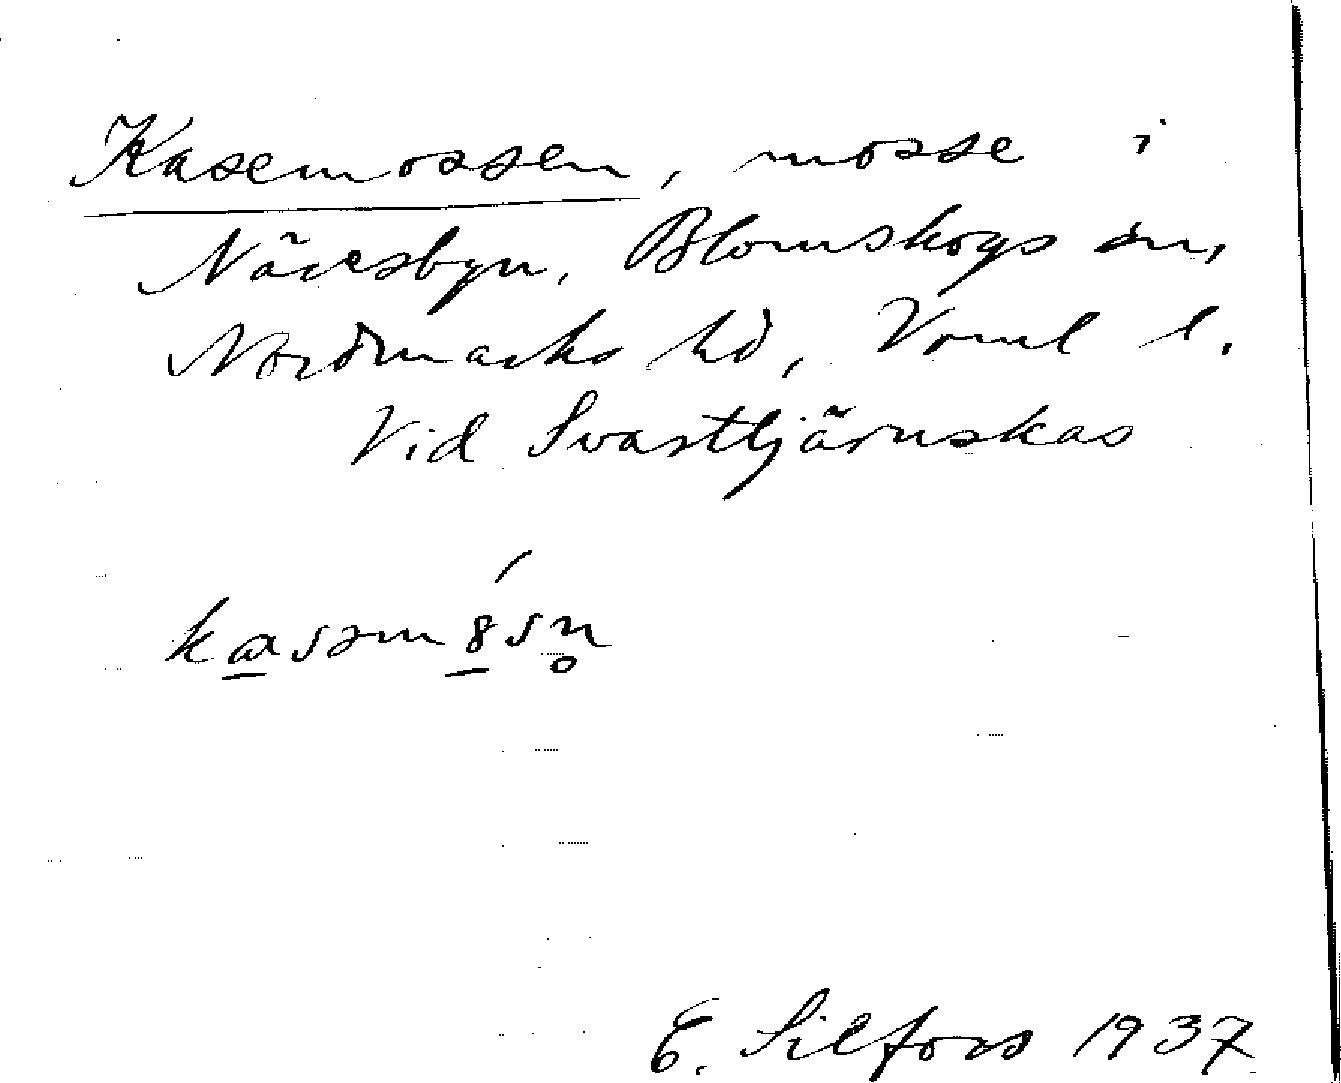 Kasemossen, mosse i
Nävesbyn, Blomskogs sn,
Nordmarks hd, Vrml l.
Vid Svarttjärnskas
E. Silfors 1937